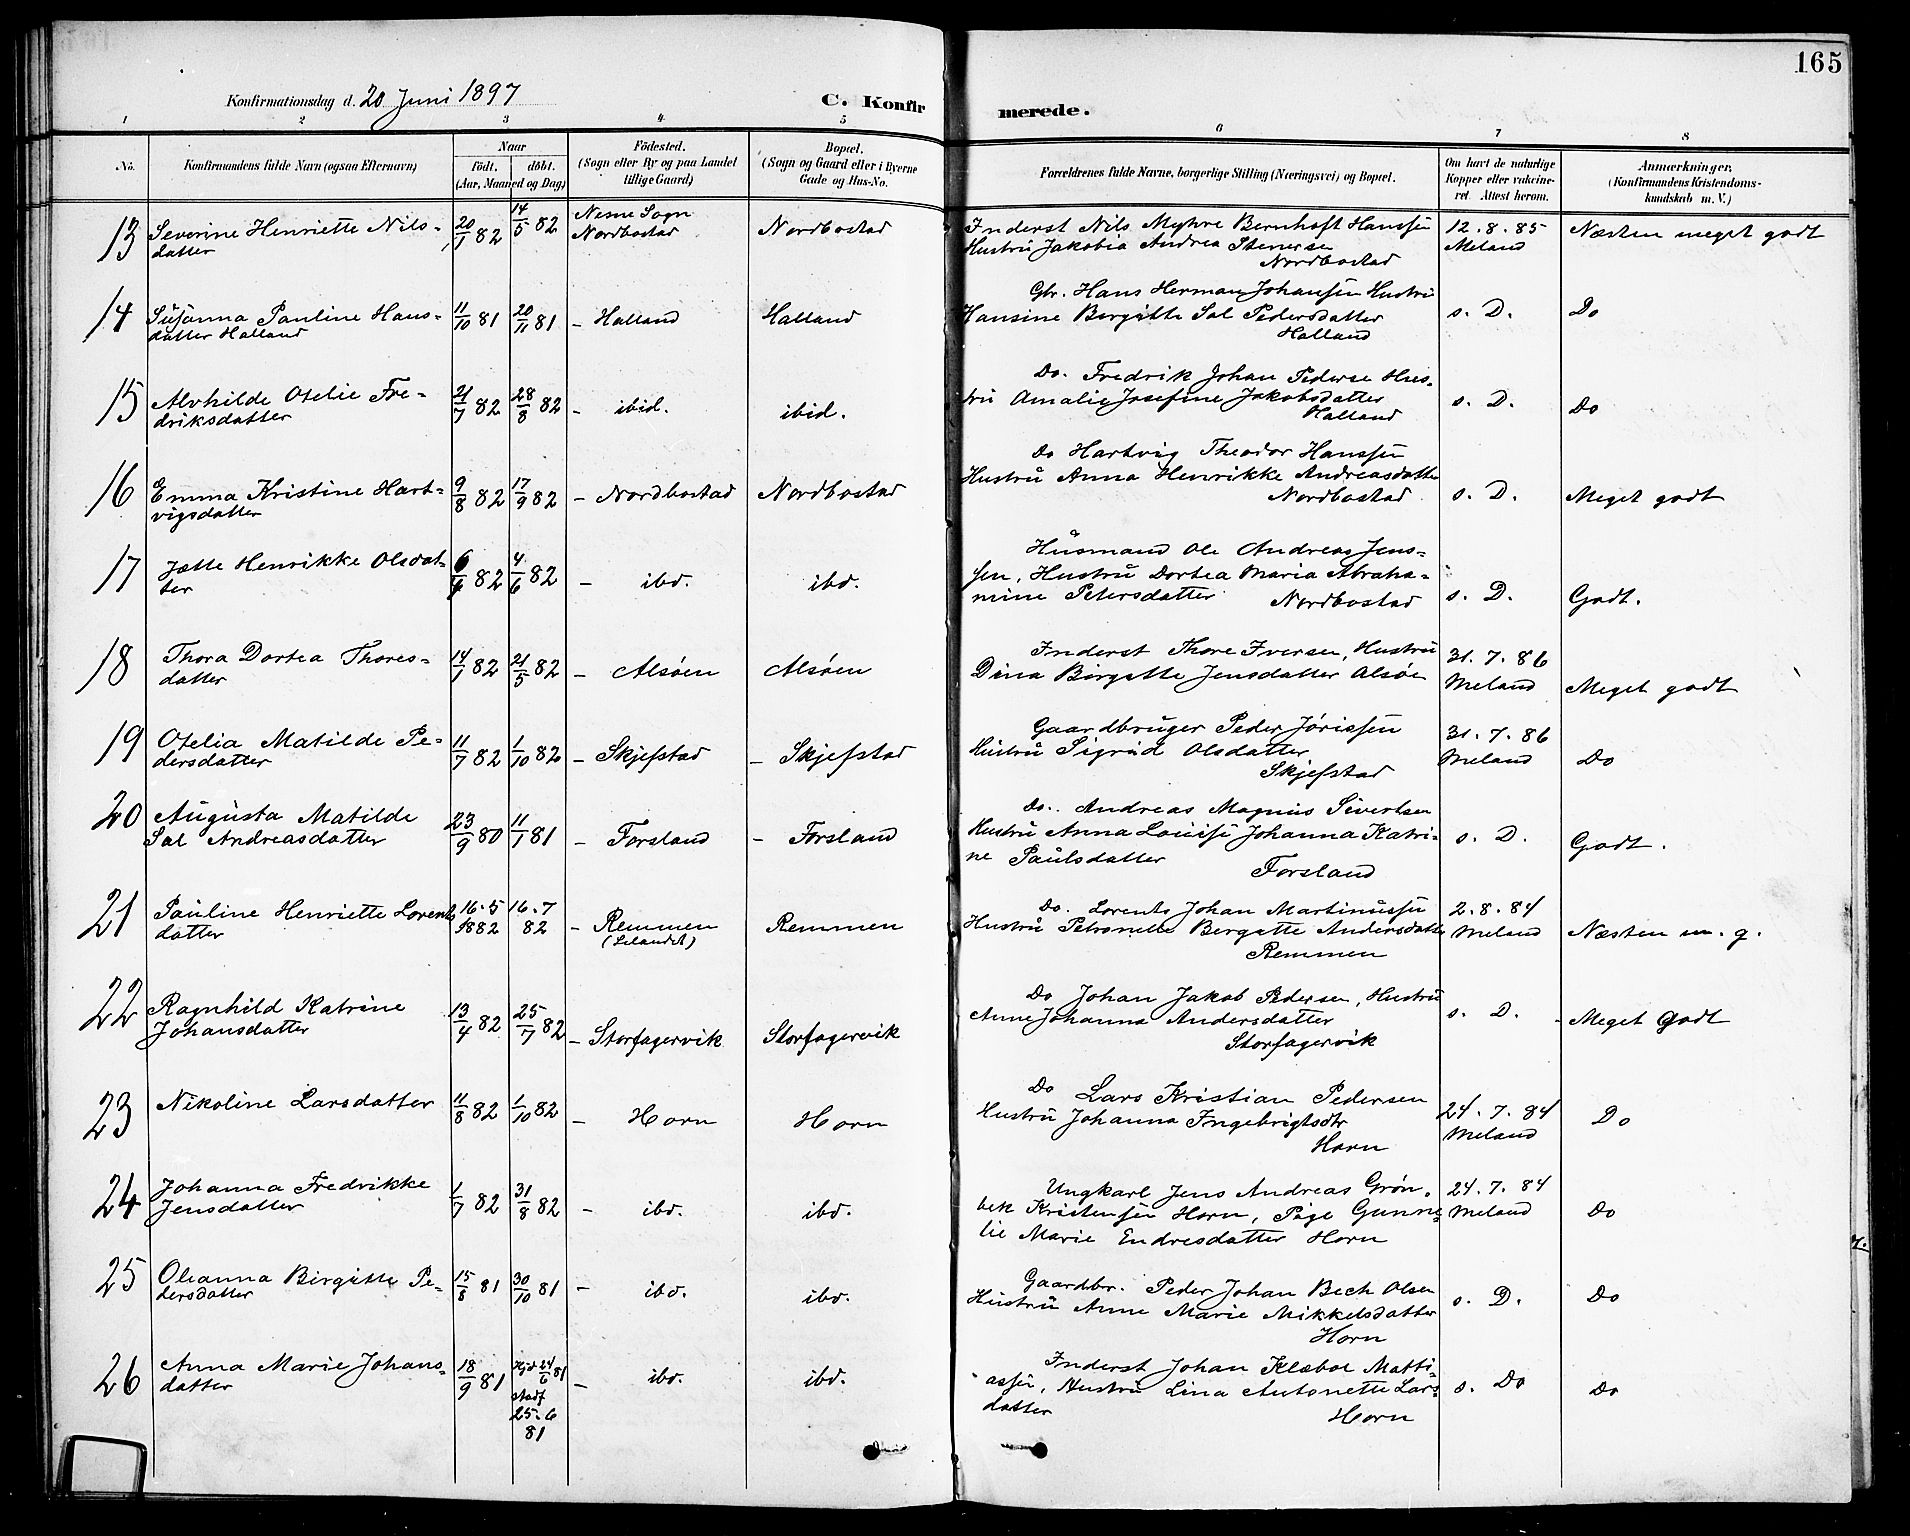 165
Konfirmationsdag d. 20 Juni 1897
C. Konfirmerede.
1 2 3 4 5 6 7 8
No. Konfirmandens fulde Navn (ogsaa Efternavn) Naar födt. döbt. (Aar, Maaned og Dag) Födested. (Sogn eller By og paa Landet tillige Gaard) Bopæl. (Sogn og Gaard eller i Byerne Gade og Hus-No. Forældrenes fulde Navne, borgerlige Stilling (Næringsvei) og Bopæl. Om havt de naturlige Kopper eller vaccineret. Attest herom. Anmærkninger. (Konfirmandens Kristendomskundskab m. V.)
13 Severine Henriette Nils- 20/1 82 14/5 82 Nesne Sogn Nordbostad Inderst Nils Myhre Bernhoft Hanssen 12.8.85 Næsten meget godt
datter Nordbostad Hustru Jakobia Andrea Stenerse Meland
Nordbostad
14 Susanna Pauline Hans- 11/10 81 20/11 81 - Halland Halland Gbr. Hans Herman Johansen Hustru s. D. Do
datter Halland Hansine Birgitte Sal Pedersdatter
Halland
15 Alvhilde Otelie Fre- 21/7 82 28/8 82 - ibid. ibid. Do. Fredrik Johan Pederse Hus- s. D. Do
driksdatter tru Amalie Josefine Jakobsdatter
Halland
16 Emma Kristine Hart- 9/8 82 17/9 82 - Nordbostad Nordbostad Do Hartvig Theodor Hanssen s. D. Meget godt
vigsdatter Hustru Anna Henrikke Andreasdatter
Nordbostad
17 Jette Henrikke Olsdat- 6/4 82 4/6 82 - ibd. ibd. Husmand Ole Andreas Jens- s. D. Godt.
ter sen, Hustru Dortea Maria Abraha-
mine Petersdatter Nordbostad
18 Thora Dortea Thores- 14/1 82 21/5 82 - Alsøen Alsøen Inderst Thore Iversen, Hustru 31.7.86 Meget godt
datter Dina Birgitte Jensdatter Alsøe Meland
19 Otelia Matilde Pe- 11/7 82 1/10 82 - Skjefstad - Skjefstad Gaardbruger Peder Jørissen 31.7.86 Do
dersdatter Hustru Sigrid Olsdatter Meland
Skjefstad
20 Augusta Matilde 23/9 80 11/1 81 - Forsland - Forsland Do.. Andreas Magnus Sivertsen s. D. Godt.
Sal Andreasdatter Hustru Anna Louise Johanna Katri-
ne Paulsdatter
Forsland
21 Pauline Henriette Lorents 16.5 1882 16.7 82 - Remmen (Lelandet) Remmen Do. Lorents Johan Martinussen 2.8.84 Næsten m. g.
datter Hustru Petronelle Bergitte Andersdatter Meland
Remmen
22 Ragnhild Katrine 13/4 82 25/7 82 - Storfagervik Storfagervik Do Johan Jakob Pedersen, Hustru s. D. - Meget Godt
Johansdatter Anne Johanna Andersdatter
Storfagervik
23 Nikoline Larsdatter 11/8 82 1/10 82 - Horn Horn Do Lars Kristian Pedersen 24.7.84 Do
Hustru Johanna Ingebrigtsdtr Meland
Horn
24 Johanna Fredrikke 1/7 82 31/8 82 - ibd. ibd. Ungkarl Jens Andreas Grøn- 24.7.84 Do
Jensdatter bek Kristensen Horn, Pige Gunne- Meland
lie Marie Endresdatter Horn
25 Oleanna Birgitte Pe- 15/8 81 30/10 81 - ibd. ibd. Gaardbr. Peder Johan Bech Olsen s. D. Do
dersdatter Hustru Anne Marie Mikkelsdatter
Horn
26 Anna Marie Johans- 18/9 81 Hjd 24/6 81 - ibd. ibd. Inderst Johan Klæboe Matti- s. Do Do
datter stadf 25.6 81 assen, Hustru Lina Antonette Lars-
datter Horn